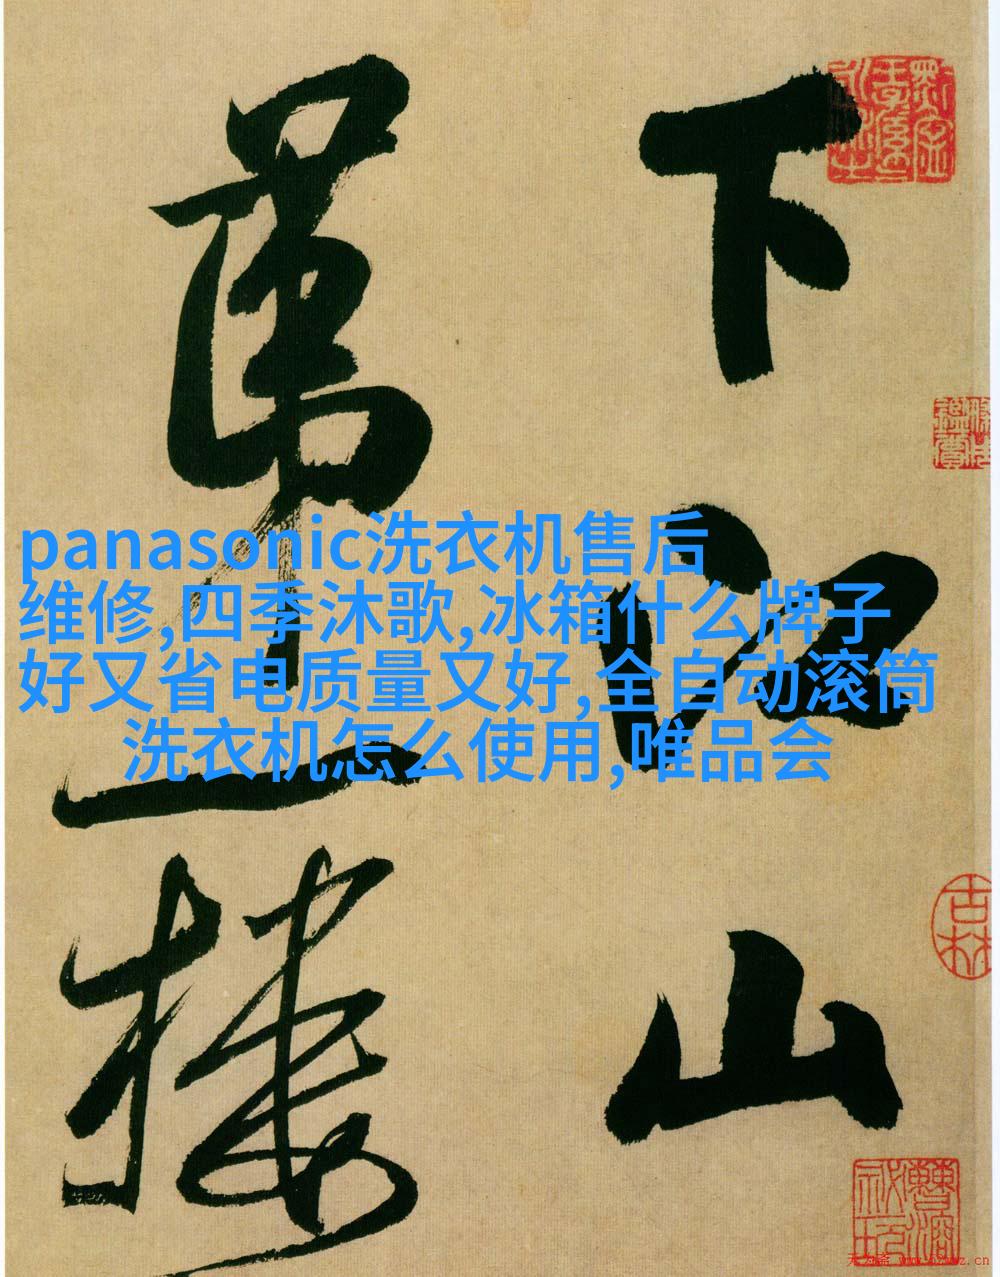 下江山
第一楼
panasonic洗衣机售后
维修,四季沐歌,冰箱什么牌子
好又省电质量又好,全自动滚筒
洗衣机怎么使用,唯品会
吉林